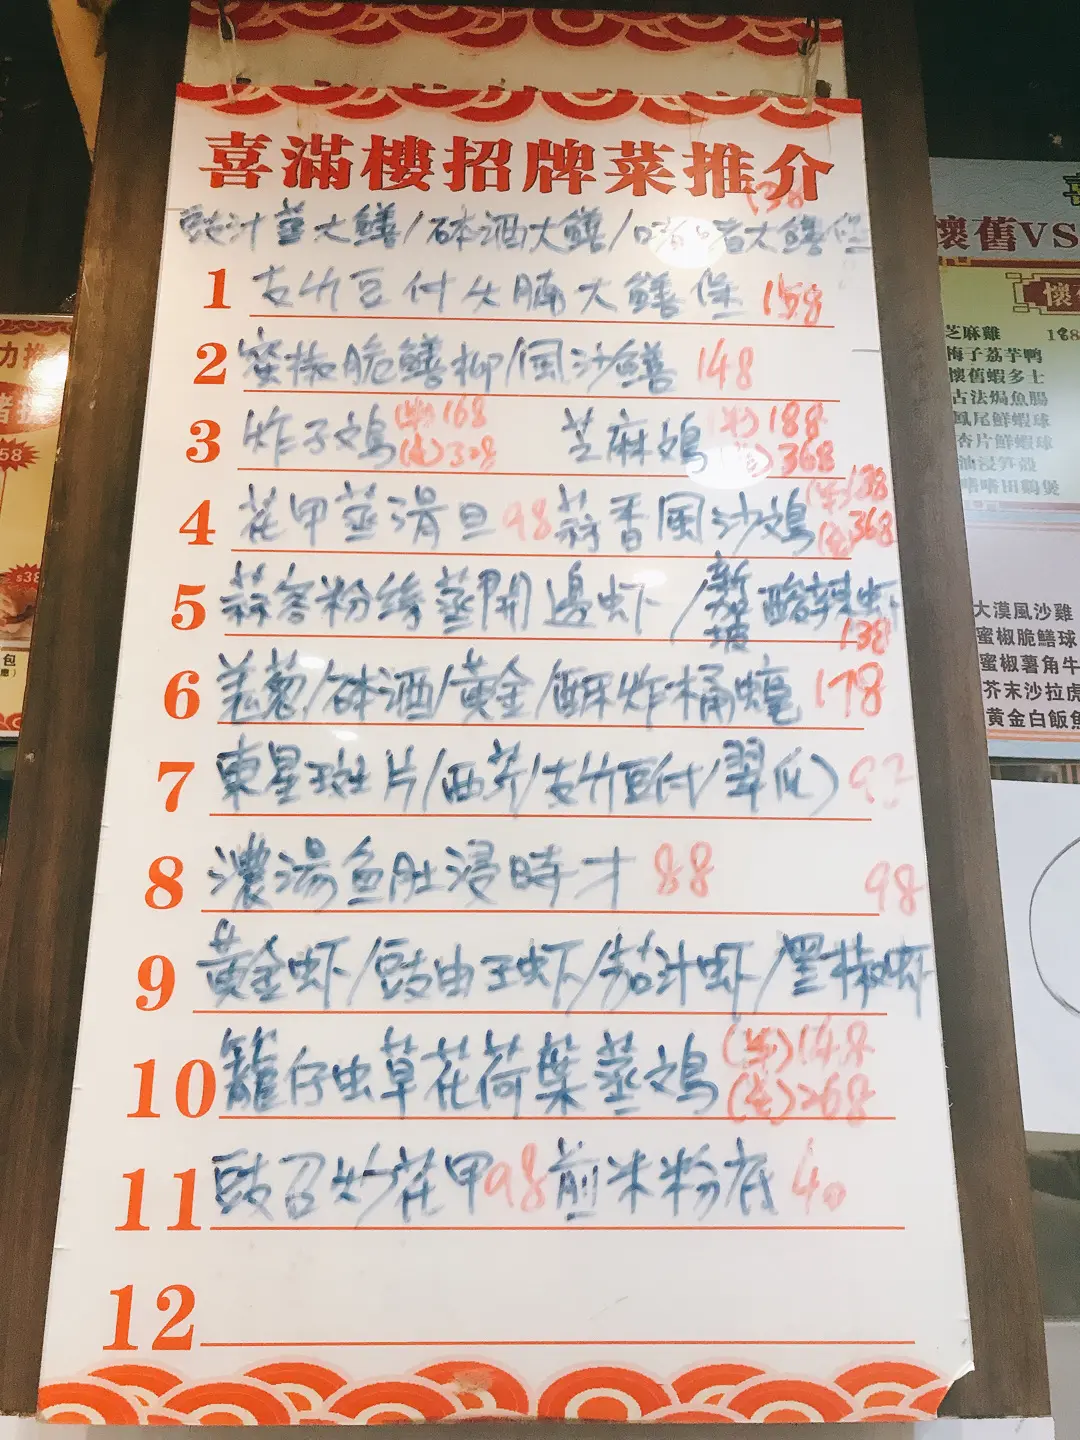 喜滿樓招牌菜推介
138
豉汁蒸大鱔/砵酒大鱔/啫啫大鱔煲
1 支竹豆付火腩大鱔煲 158
2 蜜椒脆鱔柳/風沙鱔 148
3 炸子鸡 (半)168 (隻)308 芝麻鸡 (半)188 (隻)368
4 花甲蒸滑旦 98 蒜香風沙鸡 (半)138 (隻)368
5 蒜茸粉絲蒸開邊虾/酸辣虾 138
6 姜葱/砵酒/黄金/酥炸桶蠔 178
7 東星斑片/西芹/支竹豆付/翠瓜)
8 濃湯魚肚浸時才 88
98
9 黄金虾/豉由王虾/茄汁虾/黑椒虾
10 籠仔虫草花荷葉蒸鸡 (半)148 (隻)268
11 豉召炒花甲 98 煎米粉底 40
12
懷舊VS
芝麻雞
梅子荔芋鸭
懷舊蝦多士
古法焗魚腸
鳳尾鮮蝦球
杏片鮮蝦球
油浸笋殼
啫啫田鷄煲
大漠風沙雞
蜜椒脆鱔球
蜜椒薯角牛
芥末沙拉虎
黄金白飯魚